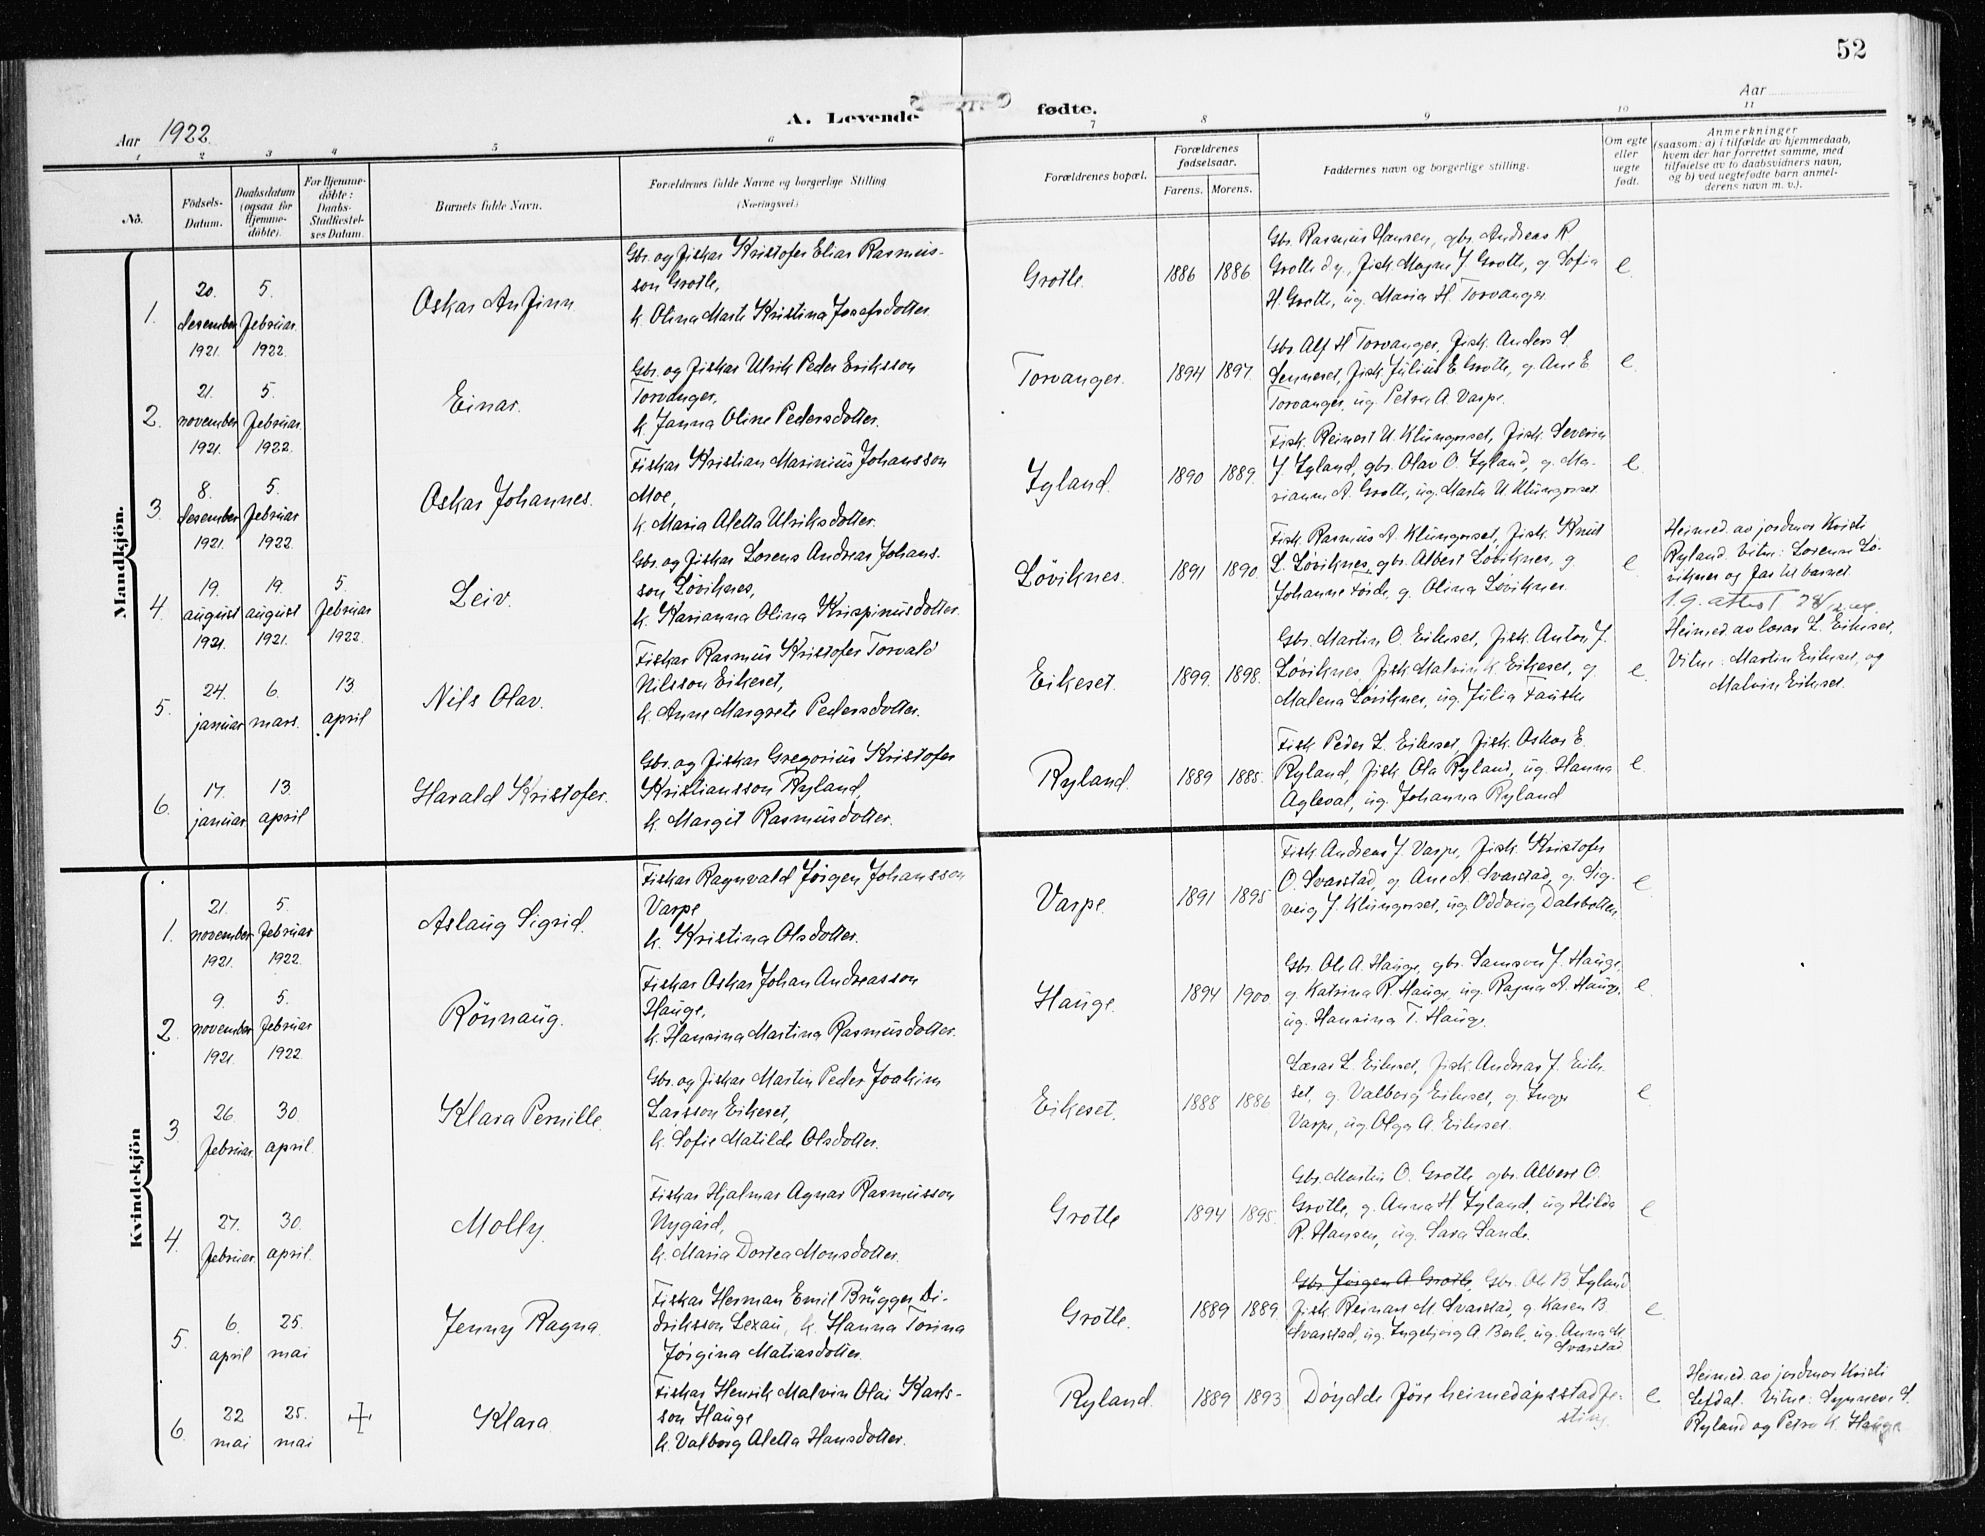 52
A. Levende fødte.
Aar 1922.
Aar
1 2 3 4 5 6 7 8 9 10 11
No.
Födsels-
Datum.
Daabsdatum
(ogsaa for
Hjemme-
döbte).
For Hjemme-
döbte:
Daabs-
Stadfæstel-
ses Datum.
Barnets fulde Navn.
Forældrenes fulde Navne og borgerlige Stilling
(Næringsvei.)
Forældrenes bopæl.
Forældrenes
fødselsaar.
Farens. Morens.
Faddernes navn og borgerlige stilling.
Om egte
eller
uegte
født.
Anmerkninger
(saasom: a) i tilfælde av hjemmedaab,
hvem der har forrettet samme, med
tilføielse av to daabsvidners navn,
og b) ved uegtefødte barn anmel-
derens navn m. v.).
Mandkjön.
1.
20.
desember
1921.
5.
februar
1922.
Oskar Anfinn
Gbr. og fiskar Kristofer Elias Rasmus-
son Grotle,
k. Olina Marte Kristina Josefsdotter.
Grotle.
1886 1886
Gbr. Rasmus Hansen, gbr. Andreas R.
Grotle d.y., fisk. Magne J. Grotle, g. Sofia
H. Grotle, ug. Maria H. Torvanger.
e.
2.
21.
november
1921.
5.
februar
1922.
Einar.
Gbr. og fiskar Ulrik Peder Eriksson
Torvanger,
k. Janna Oline Pedersdotter.
Torvanger.
1894 1897.
Gbr. Alf H. Torvanger, fisk. Anders S.
Senneset, fisk. Julius E. Grotle, g. Ane E.
Torvanger, ug. Petra A. Varpe.
e.
3.
8.
desember
1921.
5.
februar
1922.
Oskar Johannes.
Fiskar Kristian Marinius Johansson
Moe,
k. Maria Aletta Ulriksdotter.
Igland.
1890 1889.
Fisk. Reinert U. Klungreset, fisk. Severin
J. Igland, gbr. Olav O. Igland, g. Ma-
rianne A. Grotle, ug. Marta U. Klungreset.
e.
4.
19.
august
1921.
19.
august
1921.
5
februar
1922.
Leiv.
Gbr. og fiskar Lorens Andreas Johans-
son Løviknes,
k. Karianna Olina Krispinusdotter.
Løviknes.
1891 1890.
Fisk. Rasmus A. Klungreset, fisk. Knut
L. Løviknes, gbr. Albert Løviknes, g.
Johanne Førde, g. Olina Løviknes.
e.
Heimed. av jordmor Kristi
Ryland. Vitne: Lorense Lø-
viknes og far til barnet.
5.
24.
januar
6.
mars.
13.
april
Nils Olav.
Fiskar Rasmus Kristofer Torvald
Nilsson Eikeset,
k. Anne Margrete Pedersdotter.
Eikeset.
1899. 1898.
Gbr. Martin O. Eikeset, fisk. Anton J.
Løviknes, fisk. Malvin K. Eikeset, g.
Malena Løviknes, ug. Julia Fauske
e.
Heimed. av lærar L. Eikeset,
Vitne: Martin Eikeset, og
Malvin Eikeset.
6.
17.
januar
13.
april
Harald Kristofer.
Gbr. og fiskar Gregorius Kristofer
Kristiansson Ryland,
k. Margit Rasmusdotter.
Ryland.
1889 1885.
Fisk. Peder L. Eikeset, fisk. Oskar E.
Ryland, fisk. Ola Ryland, ug. Hanna
ug. Johanna Ryland
e.
Kvindekjön
1.
21.
november
1921.
5.
februar
1922.
Aslaug Sigrid.
Fiskar Ragnvald Jørgen Johansson
Varpe
k. Kristina Olsdotter.
Varpe.
1891 1895
Fisk. Andreas J. Varpe, fisk. Kristofer
O. Svarstad, g. Ane A. Svarstad, g. Sig-
veig J. Klungreset, ug. Oddveig Dalsbotten.
e.
2.
9.
november
1921.
5.
februar
1922
Rönnaug.
Fiskar Oskar Johan Andreasson
Hauge,
k. Hansina Martina Rasmusdotter.
Hauge.
1894 1900.
Gbr. Ole A. Hauge, gbr. Samson J. Hauge,
g. Katrina R. Hauge, ug. Ragna A. Hauge,
ug. Hansina T. Hauge.
e.
3
26.
februar
30.
april.
Klara Pernille.
Gbr. og fiskar Martin Peder Joakim
Larsson Eikeset,
k. Sofie Matilde Olsdotter.
Eikeset.
1888 1886
Lærar L. Eikeset, fisk. Andreas J. Eike-
set, g. Valborg Eikeset, g. Inga
Varpe, ug. Olga A. Eikeset.
e.
4.
27.
februar.
30.
april.
Molly.
Fiskar Hjalmar Agnar Rasmusson
Nygård,
k. Maria Dortea Monsdotter.
Grotle
1894 1895.
Gbr. Martin O. Grotle, gbr. Albert O.
Grotle, g. Anna H. Igland, ug. Hilda
R. Hansen, ug. Sara Sande.
e
5.
6.
april
25.
mai
Jenny Ragna.
Fiskar Herman Emil Brügger Di-
driksson Lexau, k. Hanna Torina
Jørgina Matiasdotter.
Grotle.
1889 1889.
Gbr. Jørgen A. Grotle, Gbr. Ole B. Igland
fisk. Reinart M. Svarstad, g. Karen B.
Svarstad, ug. Ingebjørg A. Berle, ug. Anna M.
Svarstad
e
6.
22
mai
25.
mai
Klara
Fiskar Henrik Malvin Olai Karls-
son Hauge
k. Valborg Aletta Hansdotter.
Ryland.
1889 1893.
Døydde føre heimedåpsstadfe-
sting.
e
Heimed. av jordmor Kristi
Sefdal. Vitne: Synneve S.
Ryland og Petra K. Hauge